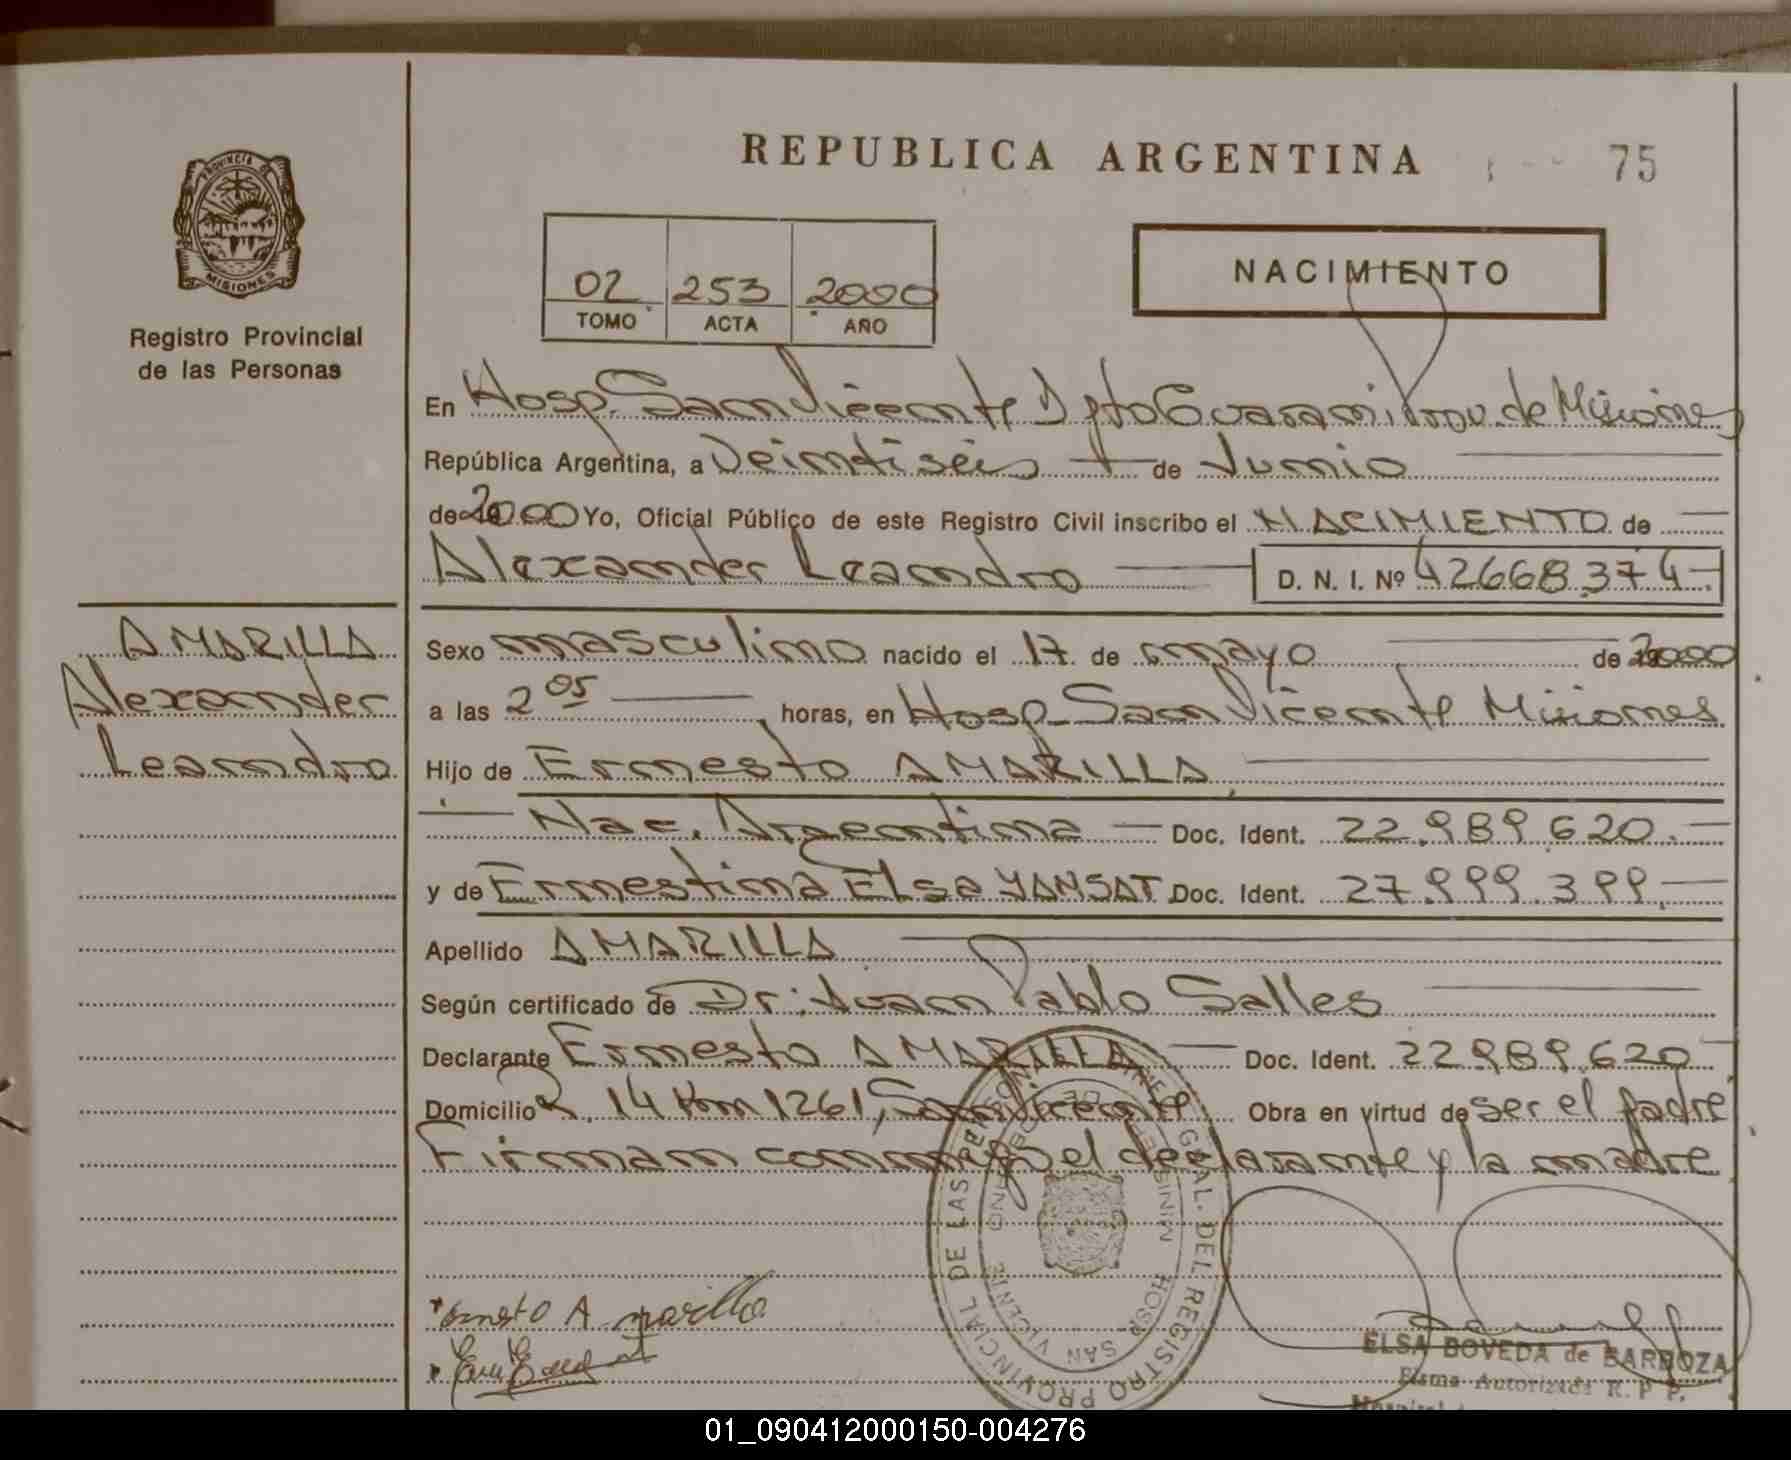 REPUBLICA ARGENTINA
75
PROVINCIA DE
MISIONES
Registro Provincial
de las Personas
02 253 2000
TOMO ACTA AÑO
NACIMIENTO
En Hosp. San Vicente Dpto Guarani Prov. de Misiones
República Argentina, a Veintiseis de Junio
de 2000 Yo, Oficial Público de este Registro Civil inscribo el NACIMIENTO de
Alexander Leandro D. N. I. Nº 42668.374
AMARILLA
Alexander
Leandro
Sexo masculino nacido el 17 de mayo de 2000
a las 2 05 horas, en Hosp. San Vicente Misiones
Hijo de Ernesto AMARILLA
Nac. Argentina Doc. Ident. 22.989.620.
y de Ernestina Elsa YANSAT Doc. Ident. 27.999.399.
Apellido AMARILLA
Según certificado de Dr: Juan Pablo Salles
Declarante Ernesto AMARILLA Doc. Ident. 22989.620
Domicilio R. 14 Km 1261, San Vicente Obra en virtud de ser el padre
Firman conmigo el declarante y la madre
REGISTRO PROVINCIAL DE LAS PERSONAS
GRAL. DEL
HOSP SAN VICENTE
Ernesto Amarilla
ELSA BOVEDA de BARBOZA
Firma Autorizada R. P. P.
Hospital
01_090412000150-004276